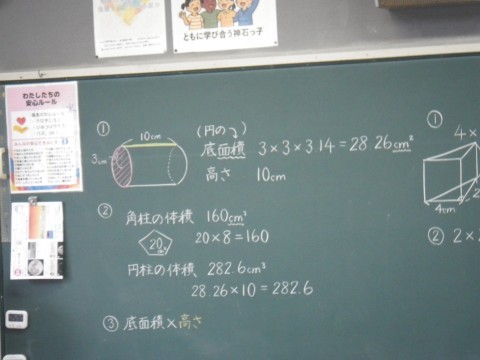 ともに学び合う神石っ子
わたしたちの
安心ルール
① 10cm
3cm
(円の↴)
底面積 3×3×3.14=28.26cm²
高さ 10cm
② 角柱の体積 160cm³
20 20×8=160
円柱の体積 282.6cm³
28.26×10=282.6
③ 底面積×高さ
①
4×
4cm
2
② 2×